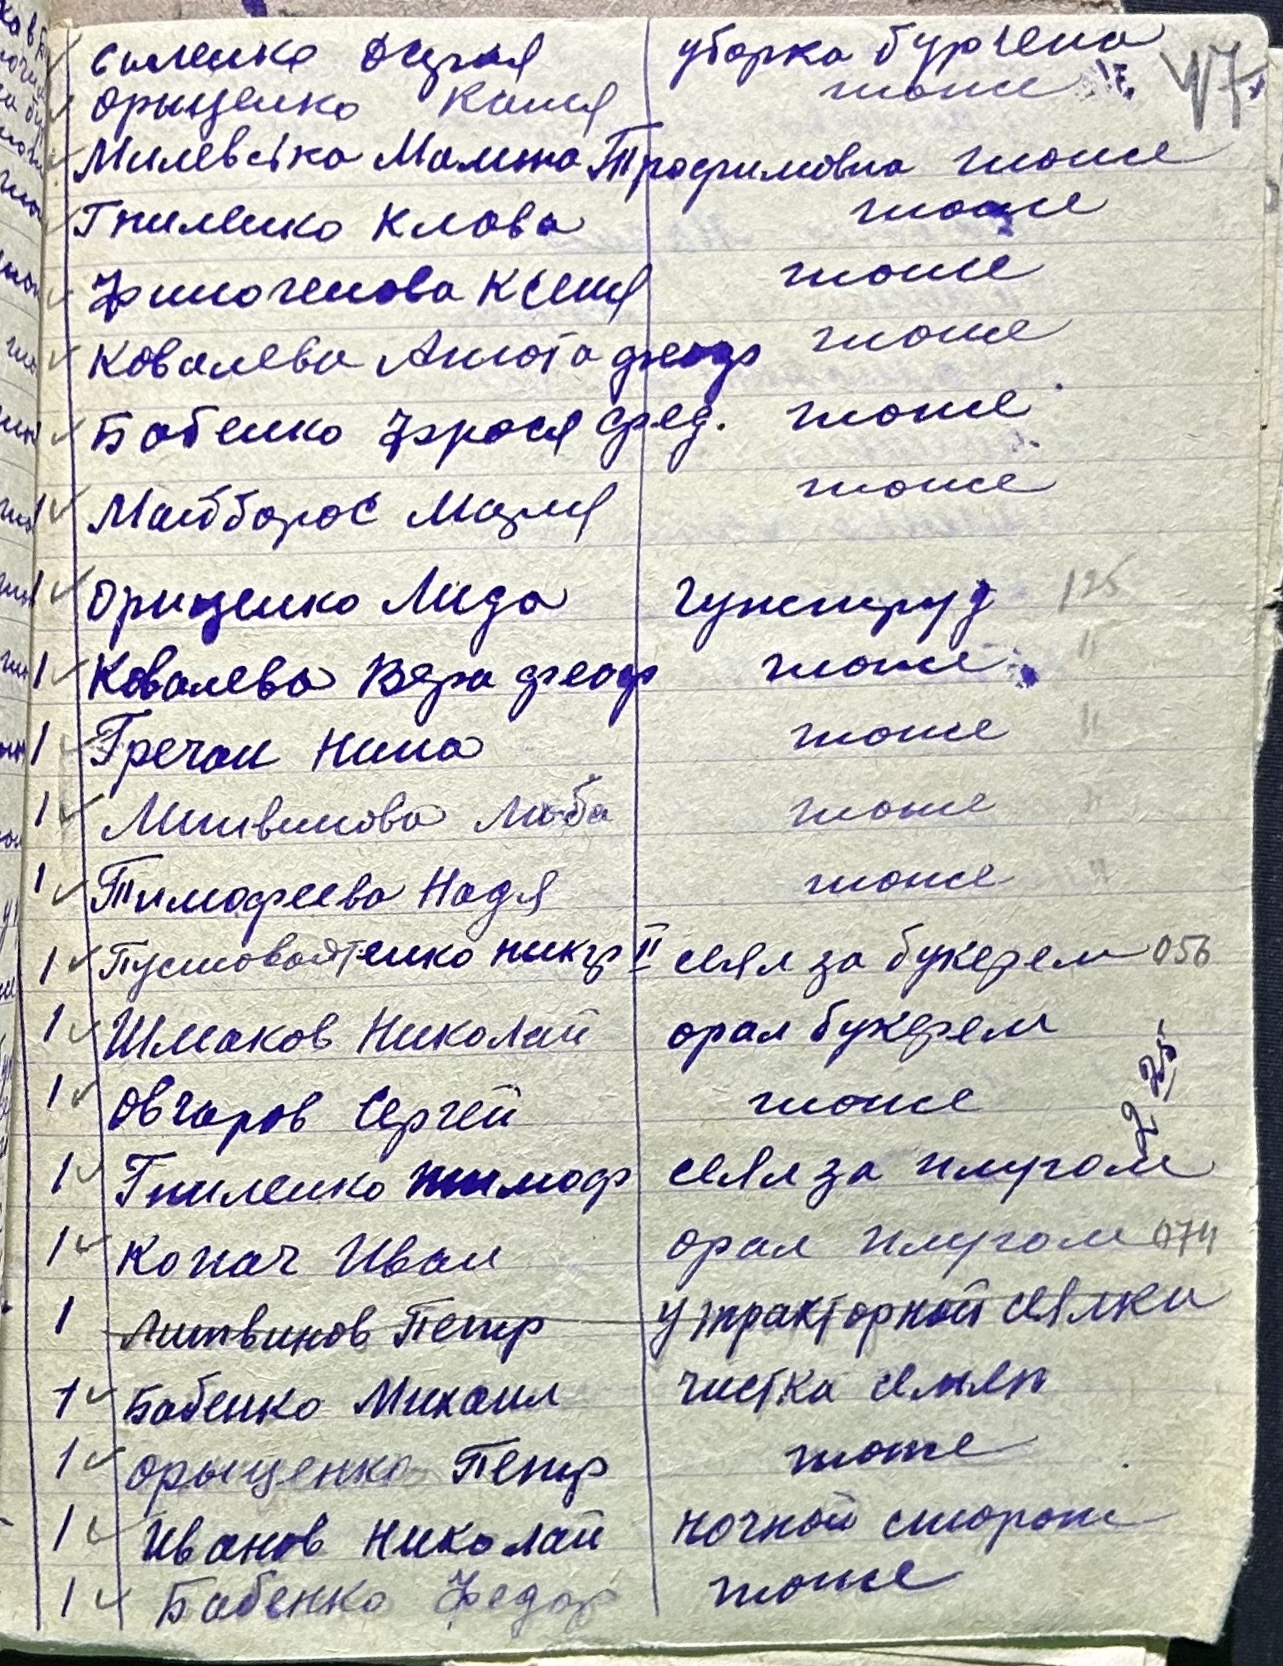 уборка бурьена 17.
Орыщенко Катя тоже
Милевська Мотя Трофимовна тоже
Гниленко Клава тоже
Филогенова Ксеня тоже
Ковалева Анюта Феодр тоже
Бабенко Фрося Фед. тоже
Майборос Мария тоже
Орищенко Лида гужтруд 125
Ковалева Вера Феодр тоже "
Гречан Нина тоже "
Литвинова Люба тоже "
Тимофеева Надя тоже "
1 Пустовойтенко Никиф II сеял за букерем 056
1 Шмаков Николай орал букерем
1 Овчаров Сергей тоже 2 25
1 Гниленко Тимоф сеял за плугом
1 Копач Иван орал плугом 074
1 Литвинов Петр у тракторной сеялки
1 Бабенко Михаил чистка семян
1 Орыщенко Петр тоже
1 Иванов Николай ночной сторож
1 Бабенко Федор тоже